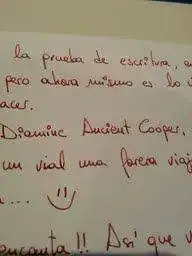 la prueba de escritura, e
pero ahora mismo es lo ú
acer.
Diamine Ancient Cooper.
un vial una parera viaj
... :)
encanta!! Así que v